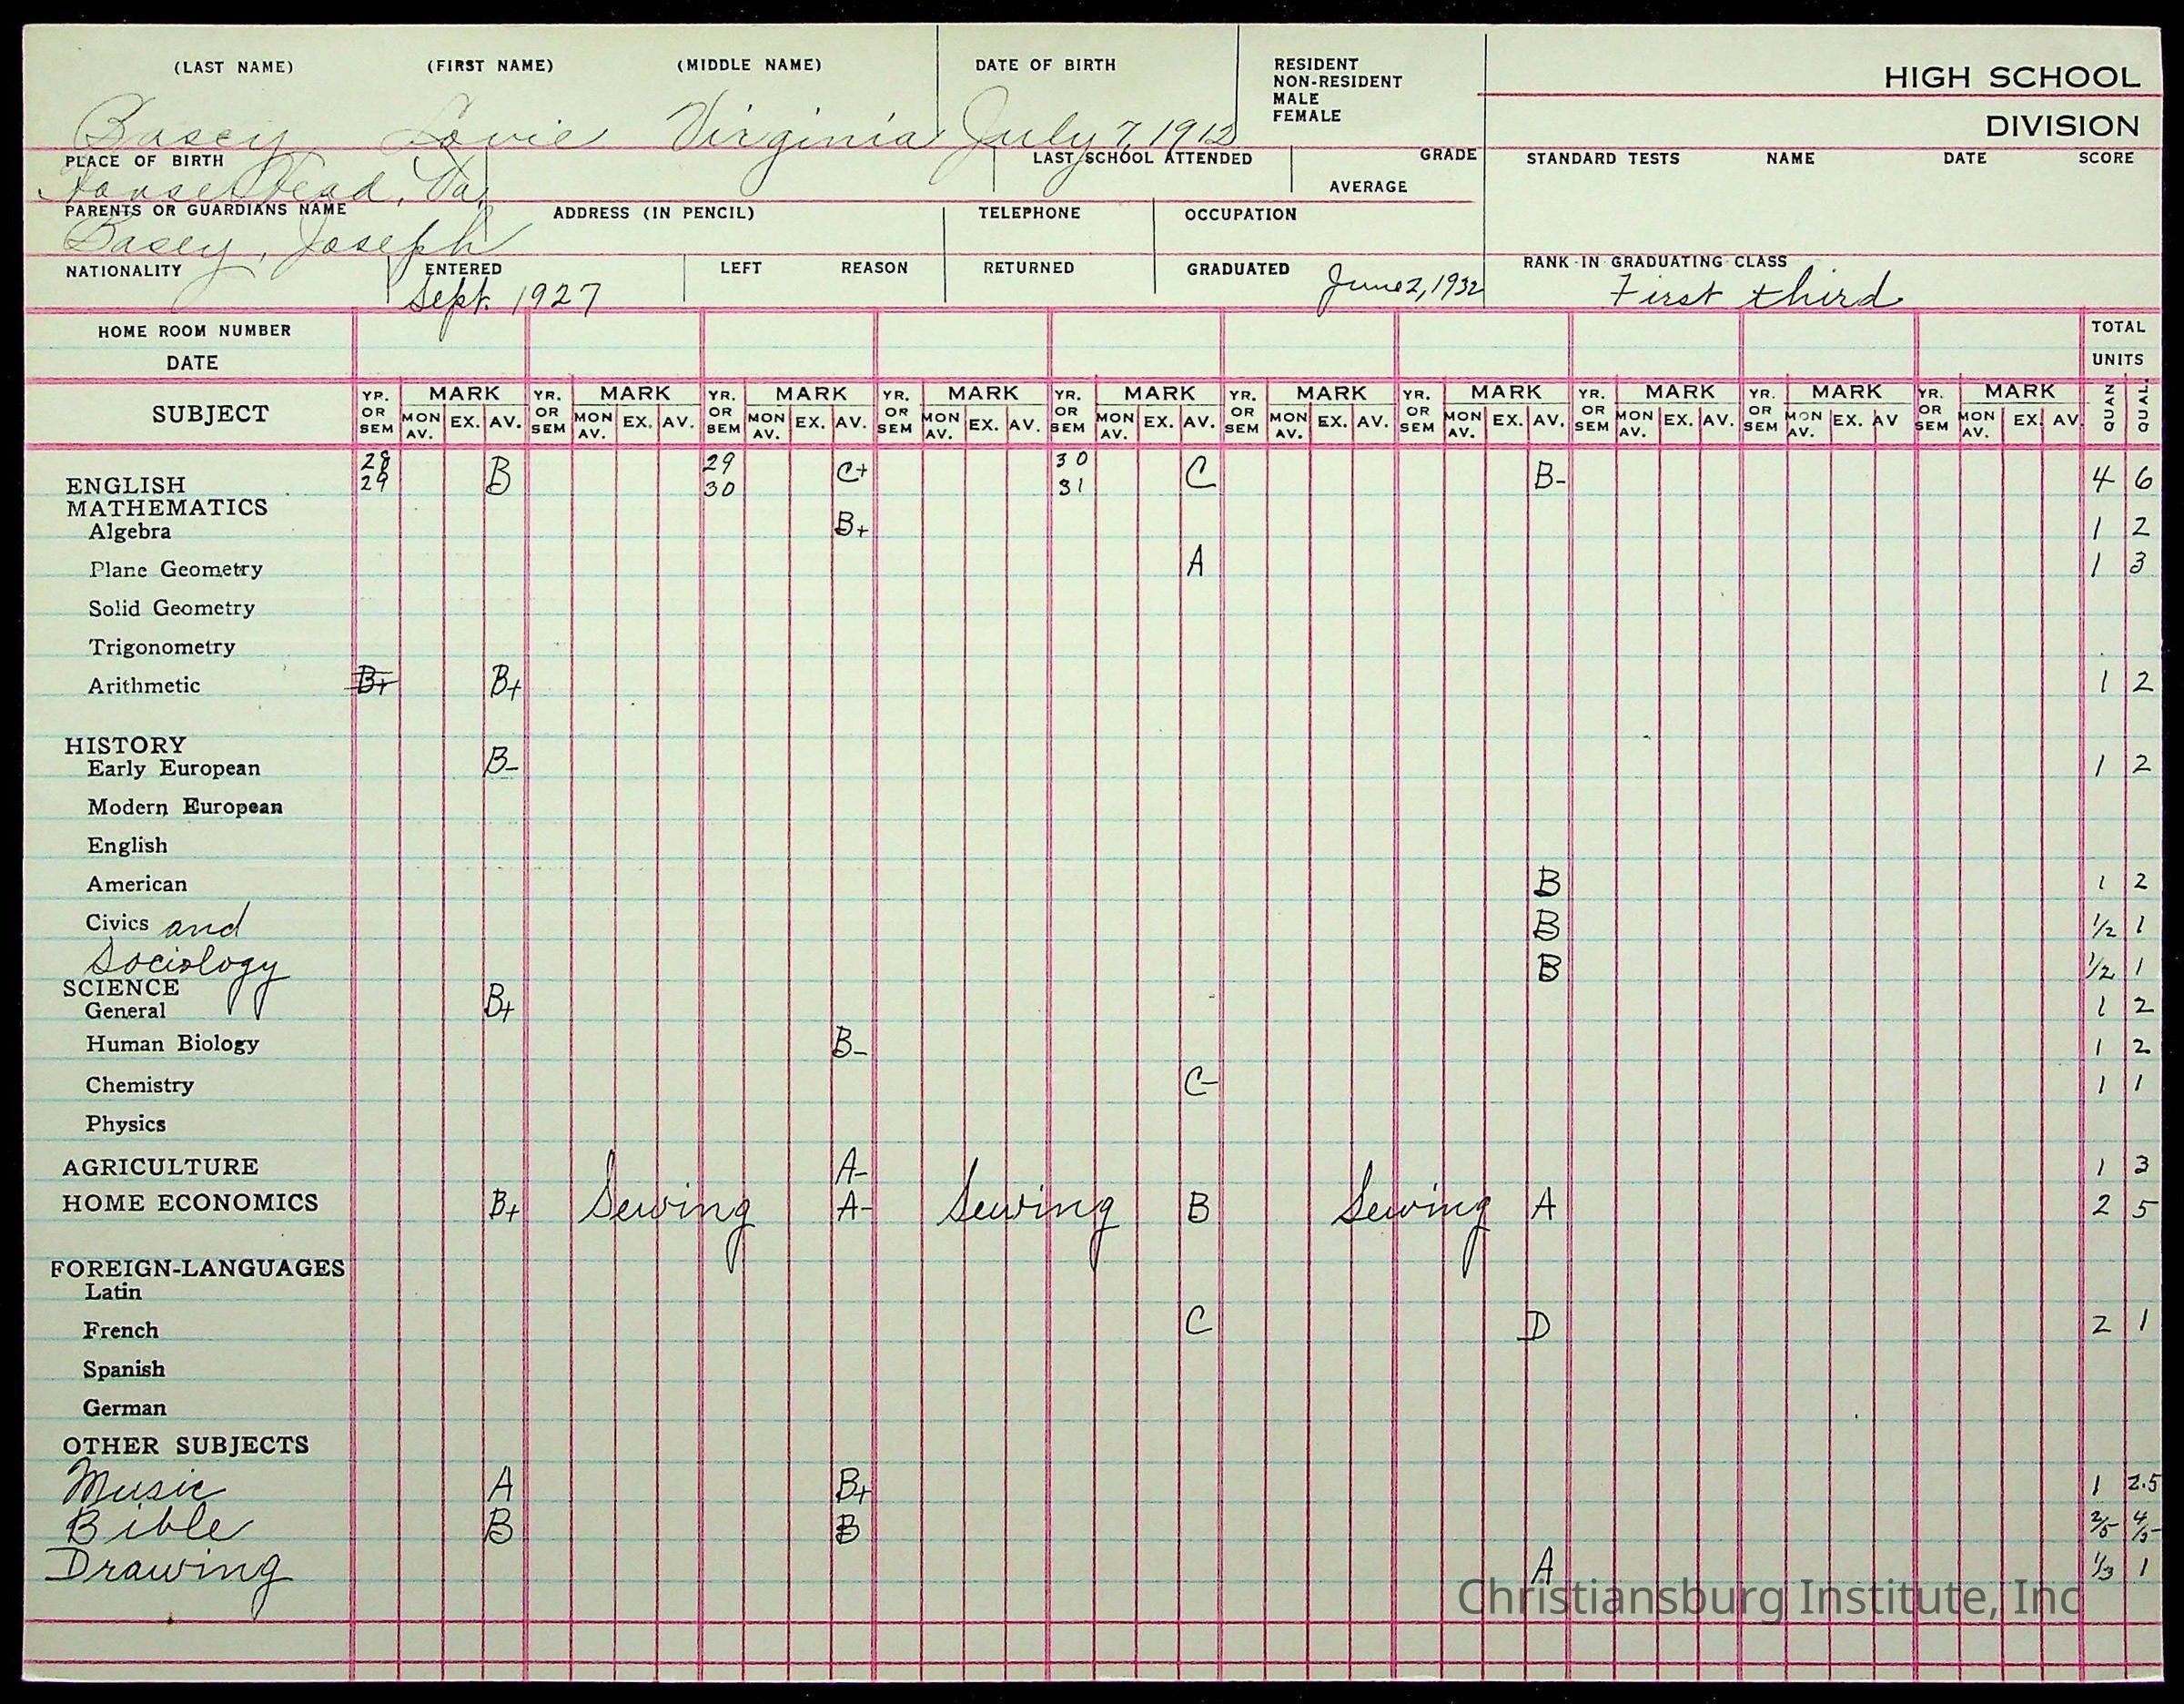 (LAST NAME) (FIRST NAME) (MIDDLE NAME) DATE OF BIRTH RESIDENT HIGH SCHOOL
NON-RESIDENT
MALE
FEMALE
Basey Lovie Virginia July 7, 1912 DIVISION
PLACE OF BIRTH LAST SCHOOL ATTENDED GRADE STANDARD TESTS NAME DATE SCORE
AVERAGE
Head, Va.
PARENTS OR GUARDIANS NAME ADDRESS (IN PENCIL) TELEPHONE OCCUPATION
Basey, Joseph
NATIONALITY ENTERED LEFT REASON RETURNED GRADUATED RANK IN GRADUATING CLASS
Sept. 1927 June 2, 1932 First third
HOME ROOM NUMBER TOTAL
DATE UNITS
SUBJECT YR. OR SEM MARK MON AV. EX. AV. YR. OR SEM MARK MON AV. EX. AV. YR. OR SEM MARK MON AV. EX. AV. YR. OR SEM MARK MON AV. EX. AV. YR. OR SEM MARK MON AV. EX. AV. YR. OR SEM MARK MON AV. EX. AV. YR. OR SEM MARK MON AV. EX. AV. YR. OR SEM MARK MON AV. EX. AV. YR. OR SEM MARK MON AV. EX. AV YR. OR SEM MARK MON AV. EX. AV. QUAN QUAL.
ENGLISH 28 29 B 29 30 C+ 30 31 C B- 4 6
MATHEMATICS
Algebra B+ 1 2
Plane Geometry A 1 3
Solid Geometry
Trigonometry
Arithmetic B+ B+ 1 2
HISTORY
Early European B- 1 2
Modern European
English
American B 1 2
Civics and B 1/2 1
Sociology B 1/2 1
SCIENCE
General B+ 1 2
Human Biology B- 1 2
Chemistry C- 1 1
Physics
AGRICULTURE A- 1 3
HOME ECONOMICS B+ Sewing A- Sewing B Sewing A 2 5
FOREIGN-LANGUAGES
Latin
French C D 2 1
Spanish
German
OTHER SUBJECTS
Music A B+ 1 2.5
Bible B B 2/5 4/5
Drawing A 1/3 1
Christiansburg Institute, Inc